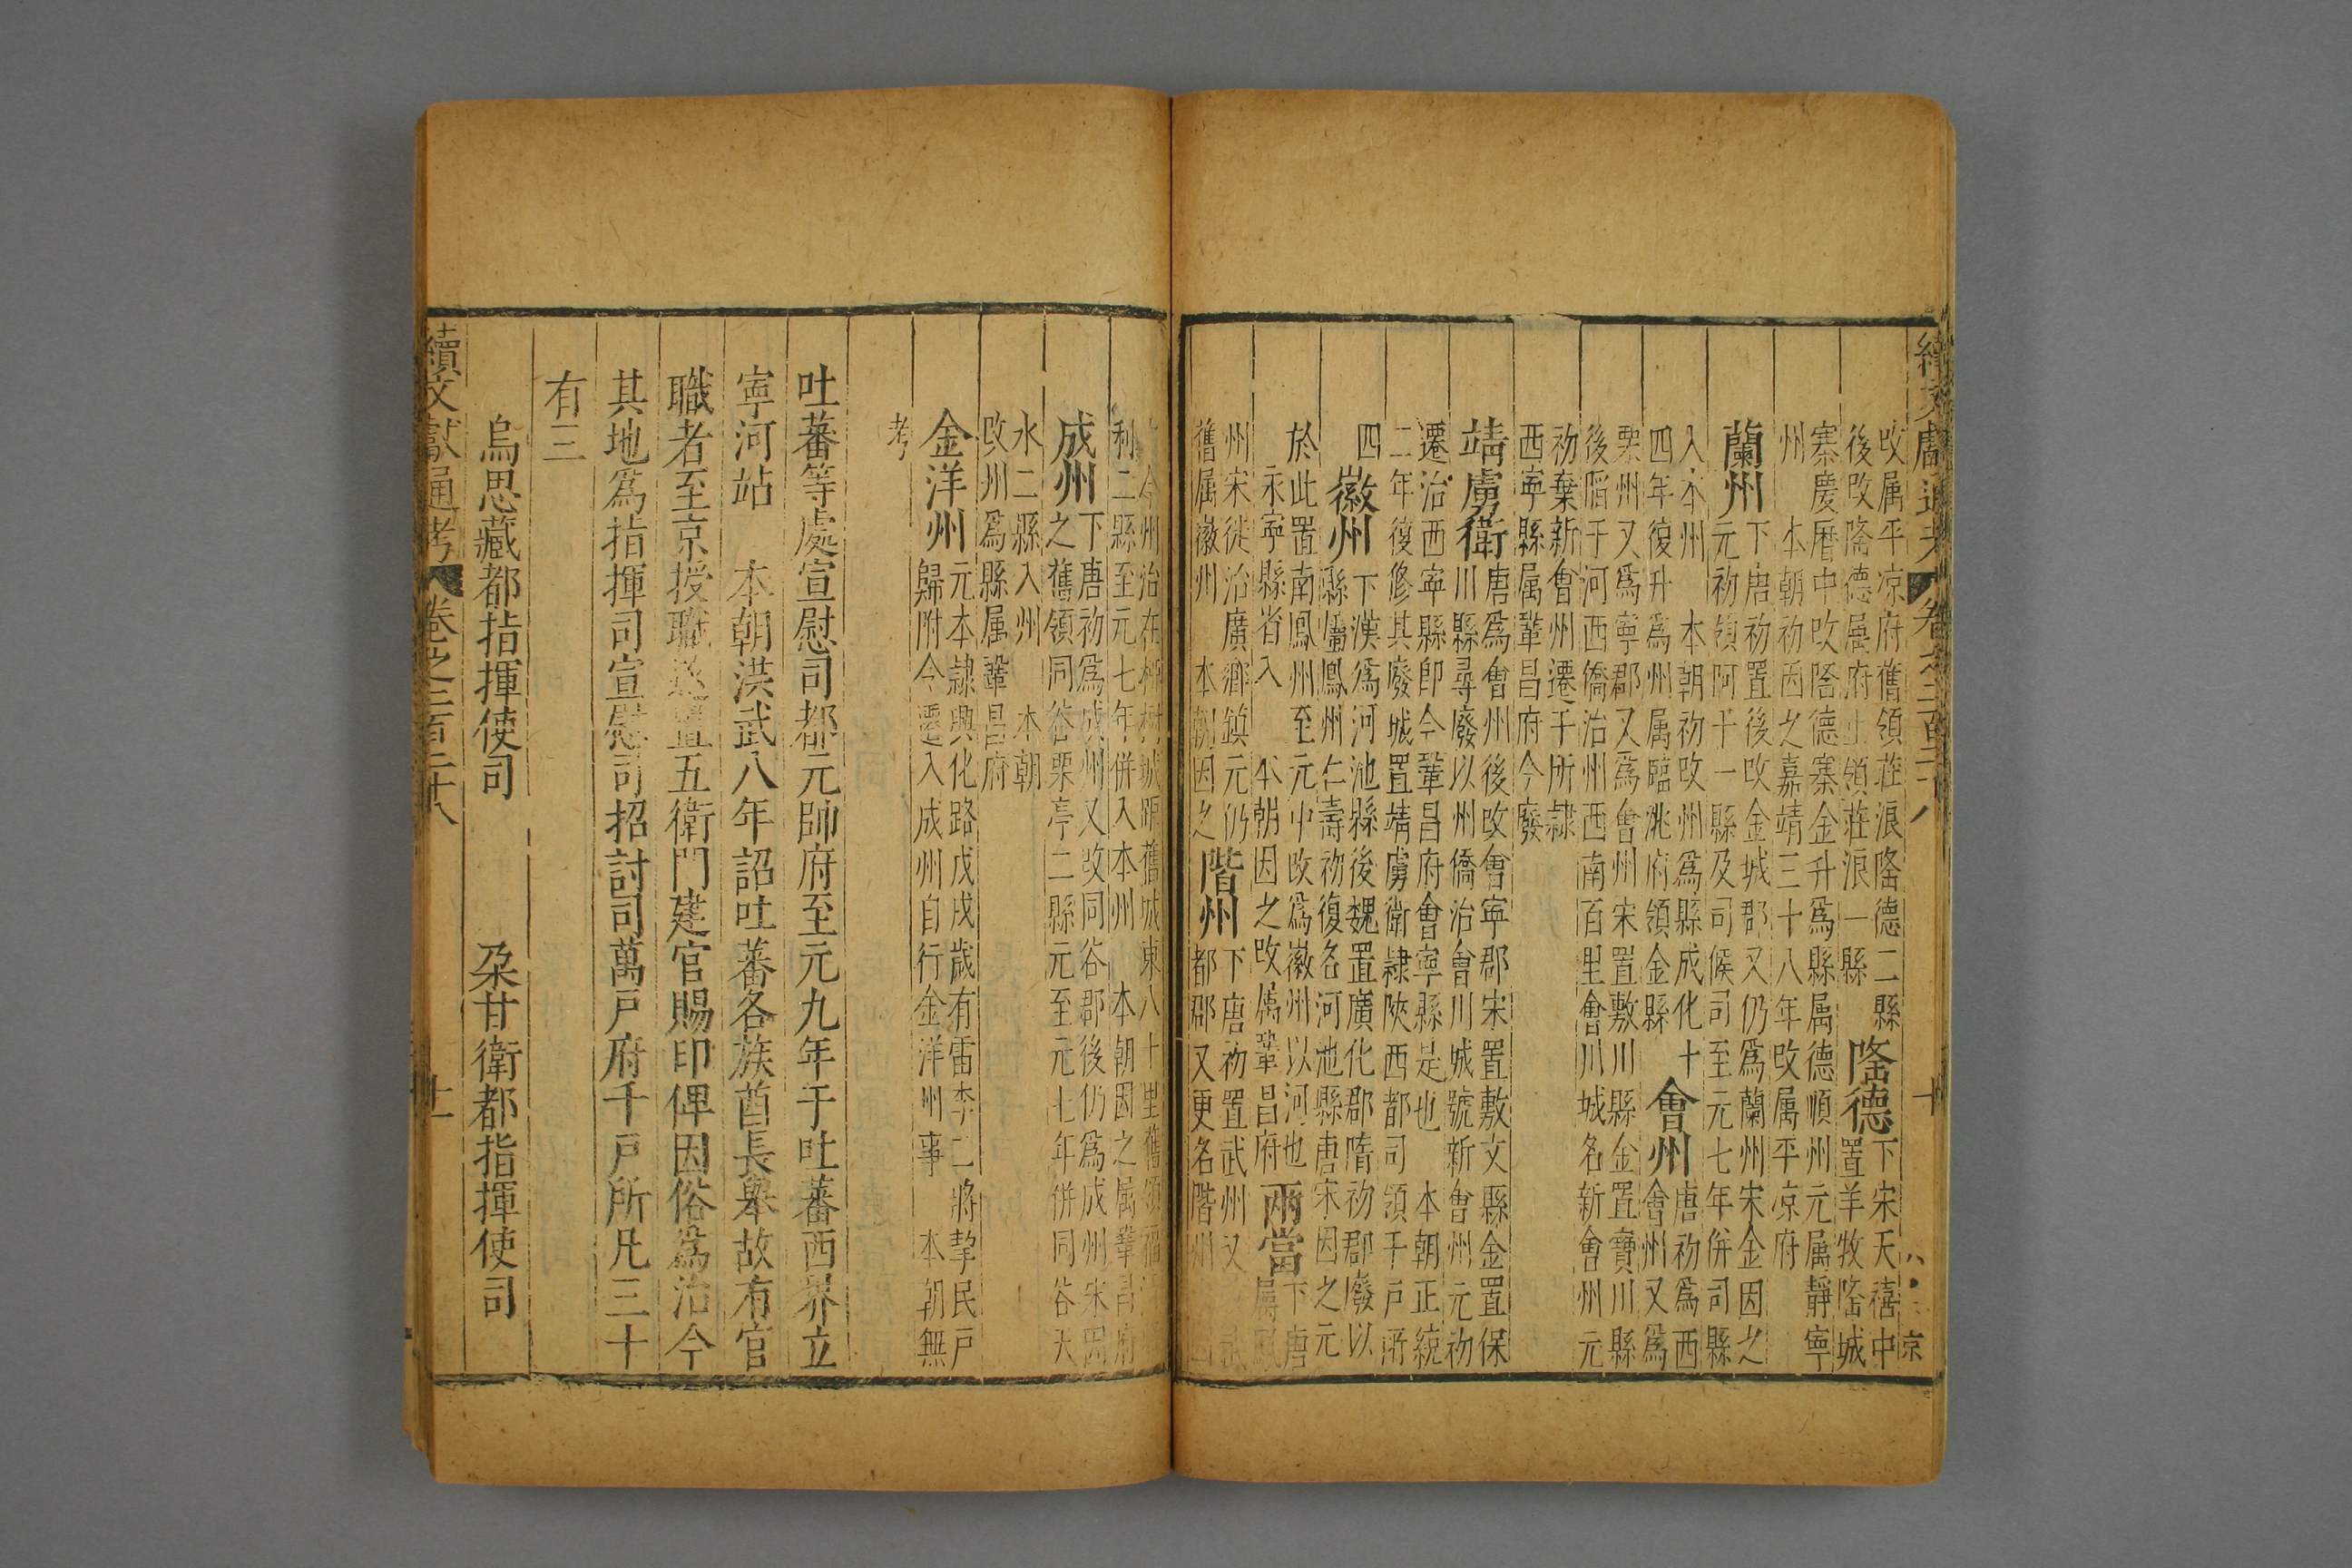 續文獻通考 卷之二百二十八 十
改属平凉府舊領莊浪隆德二縣
後改隆德属府止領莊浪一縣
隆德
下宋天禧中
置羊牧隆城
寨慶曆中改隆德寨金升爲縣属德順州元属靜寧
州 本朝初因之嘉靖三十八年改属平凉府
蘭州
下唐初置後改金城郡又仍爲蘭州宋金因之
元初領阿干一縣及司候司至元七年併司縣
入本州 本朝初改州爲縣成化十
四年復升爲州属臨洮府領金縣
會州
唐初爲西
會州又爲
粟州又爲寧郡又爲會州宋置敷川縣金置寶川縣
後陷于河西僑治州西南百里會川城名新會州元
初棄新會州遷于所隷
西寧縣属鞏昌府今廢
靖虜衛
唐爲會州後改會寧郡宋置敷文縣金置保
川縣尋廢以州僑治會川城號新會州元初
遷治西寧縣即今鞏昌府會寧縣是也 本朝正統
二年復修其廢城置靖虜衛隷陜西都司領千戸所
四
徽州
下漢爲河池縣後魏置廣化郡隋初郡廢以
縣屬鳳州仁壽初復名河池縣唐宋因之元
於此置南鳳州至元中改爲徽州以河池
永寧縣省入 本朝因之改属鞏昌府
兩當
下唐
属鳳
州宋徙治廣鄉鎮元仍
舊属徽州 本朝因之
階州
下唐初置武州又
都郡又更名階州
今州治在柳樹城距舊城東八十里舊領福
利二縣至元七年併入本州 本朝因之属鞏昌府
成州
下唐初爲成州又改同谷郡後仍爲成州宋因
之舊領同谷栗亭二縣元至元七年併同谷天
水二縣入州 本朝
改州爲縣属鞏昌府
金洋州
元本隷興化路戊戌歲有雷李二將挈民戸
歸附今遷入成州自行金洋州事 本朝無
考
吐蕃等處宣慰司都元帥府至元九年于吐蕃西界立
寧河站 本朝洪武八年詔吐蕃各族酋長舉故有官
職者至京授職遂置五衛門建官賜印俾因俗爲治今
其地爲指揮司宣慰司招討司萬戸府千戸所凡三十
有三
烏思藏都指揮使司 朶甘衛都指揮使司
續文獻通考 卷之二百二十八 十一